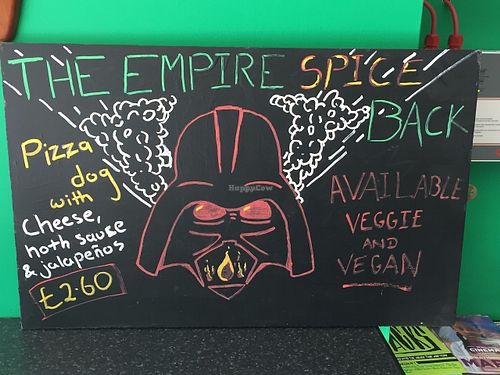 THE EMPIRE SPICE
BACK
Pizza
dog
with
Cheese,
hoth sause
& jalapeños
£2.60
AVAILABLE
VEGGIE
AND
VEGAN
HappyCow
CINEMA